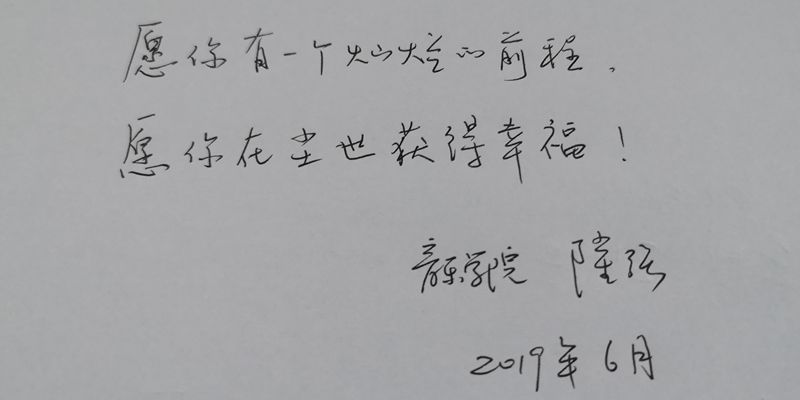 愿你有一个灿烂的前程，
愿你在尘世获得幸福！
音乐学院 陆弦
2019年6月